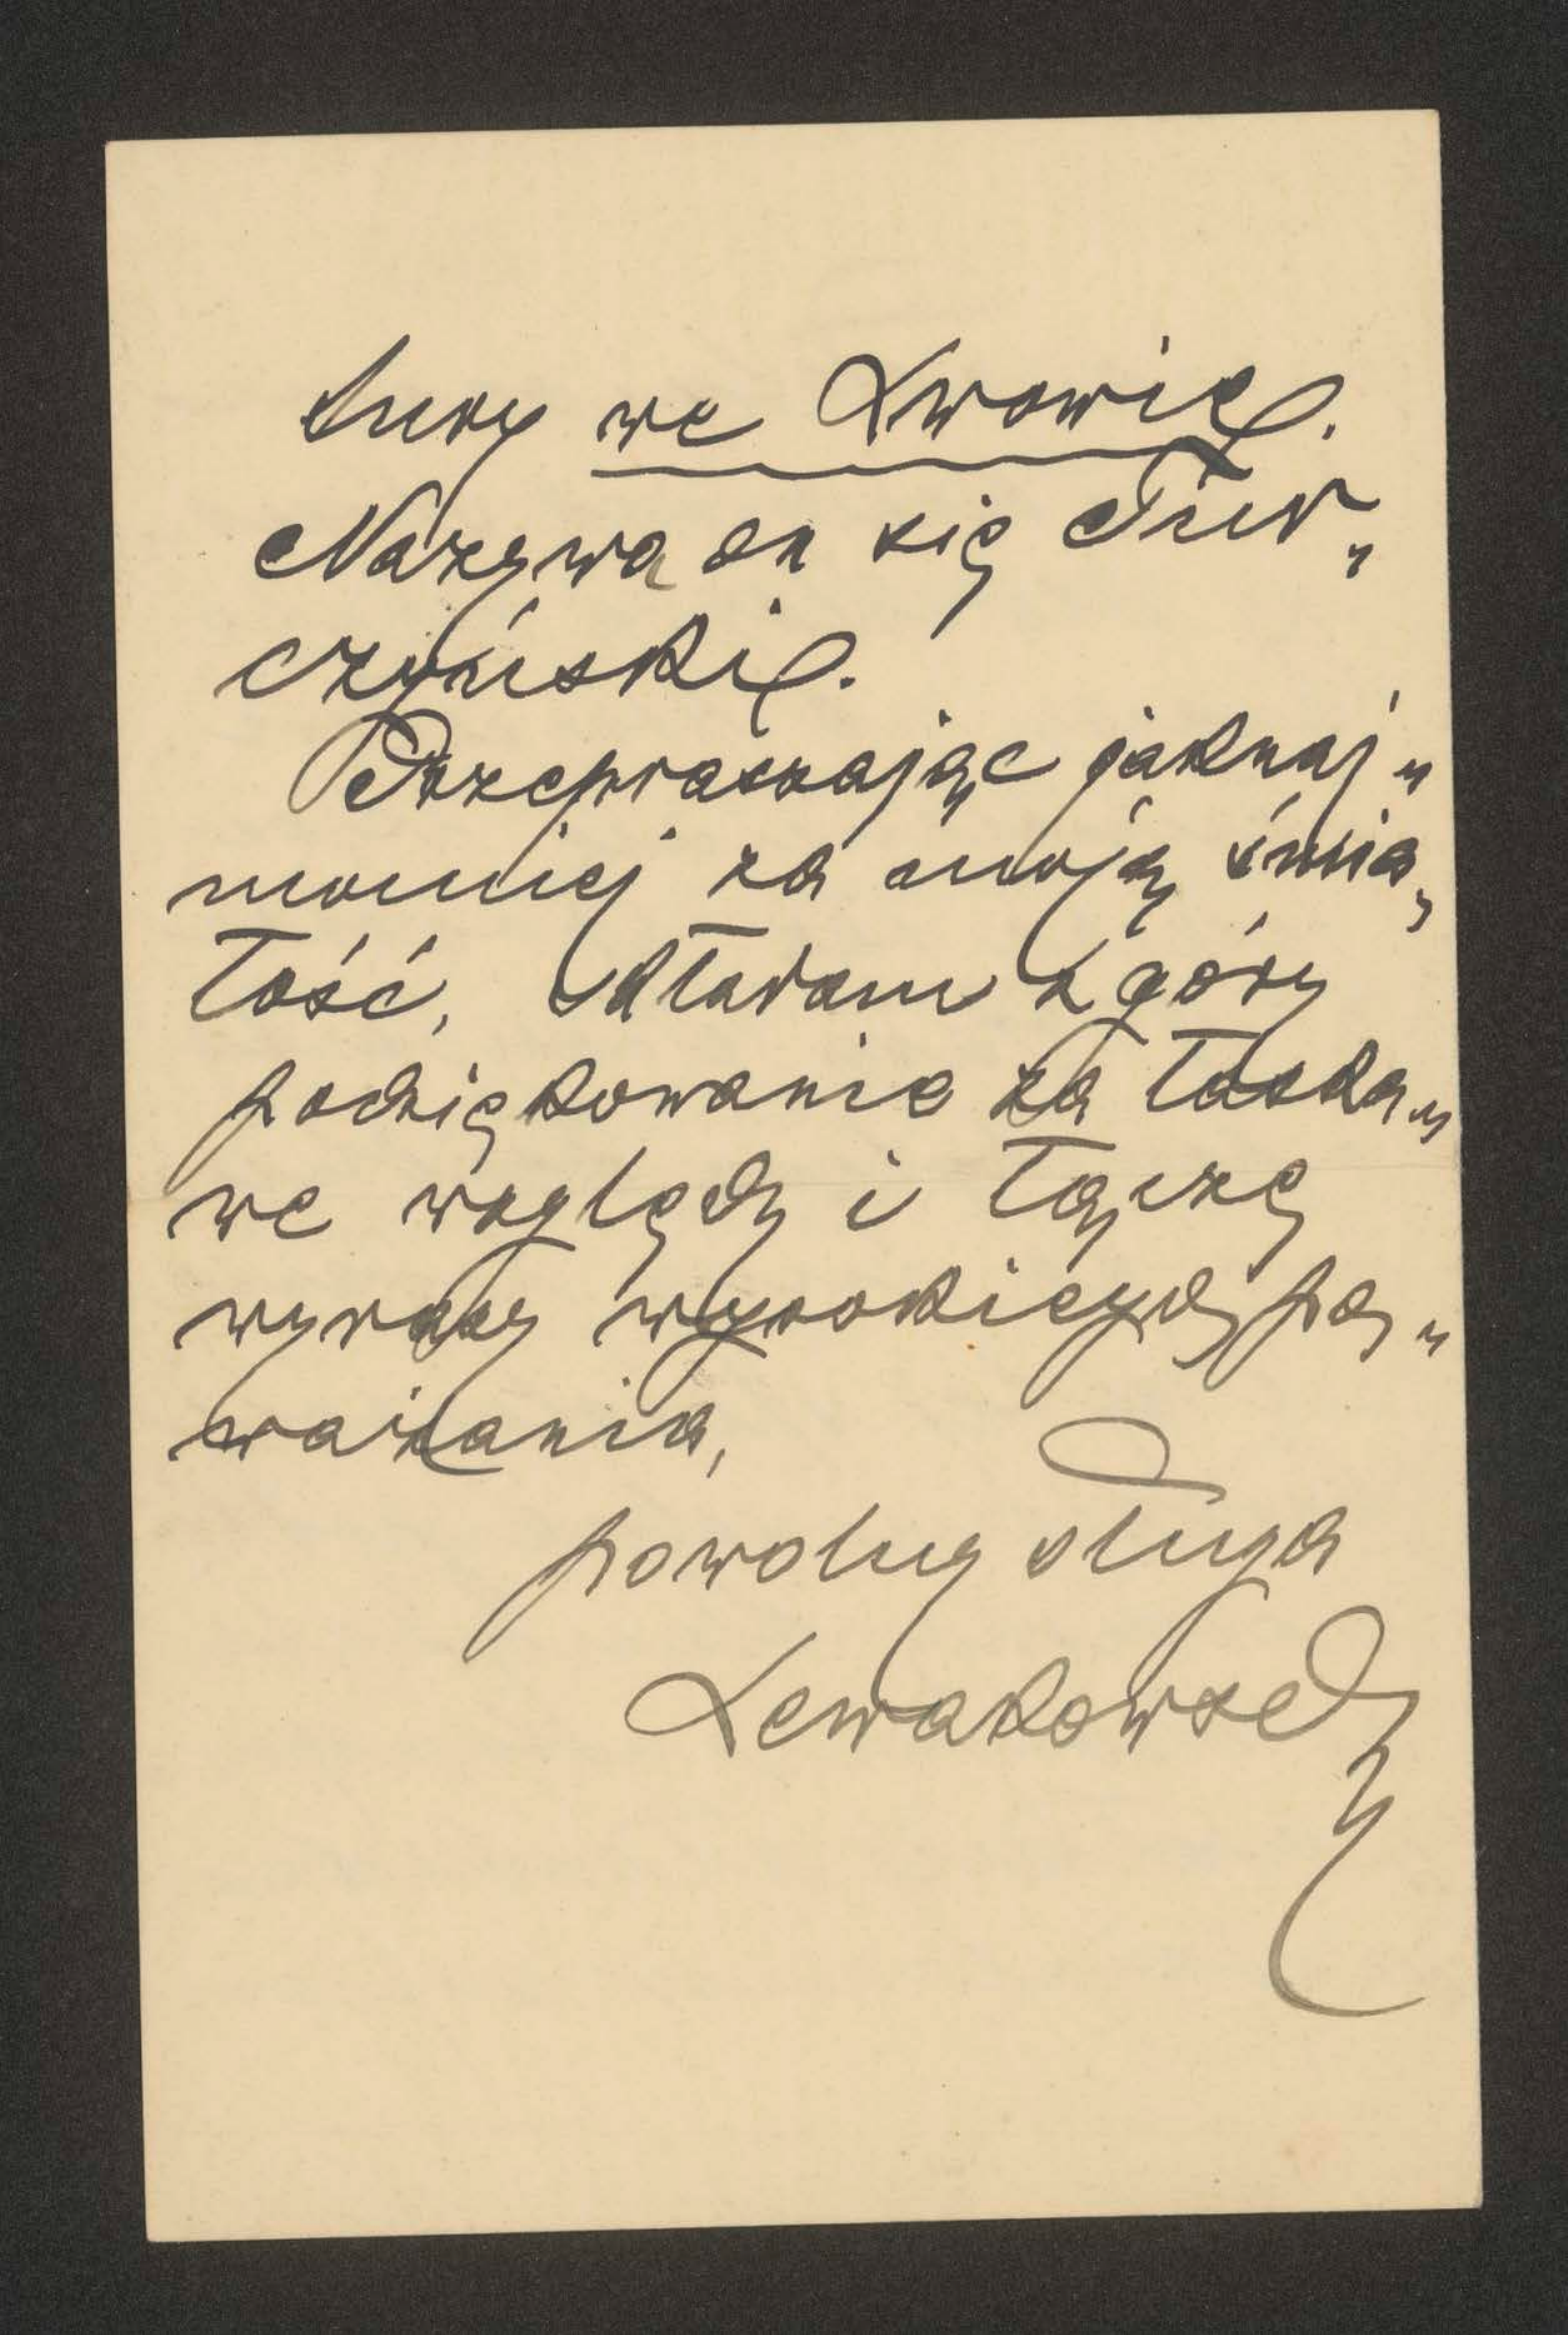 tury we Lwowie.
Nazywa on się Tur„
czyński.
Przepraszając jaknaj„
mocniej za moją śmia„
łość, składam z góry
podziękowanie za łaska„
we względy i łączę
wyrazy wysokiego po„
ważania,
powolny sługa
Lewakowski